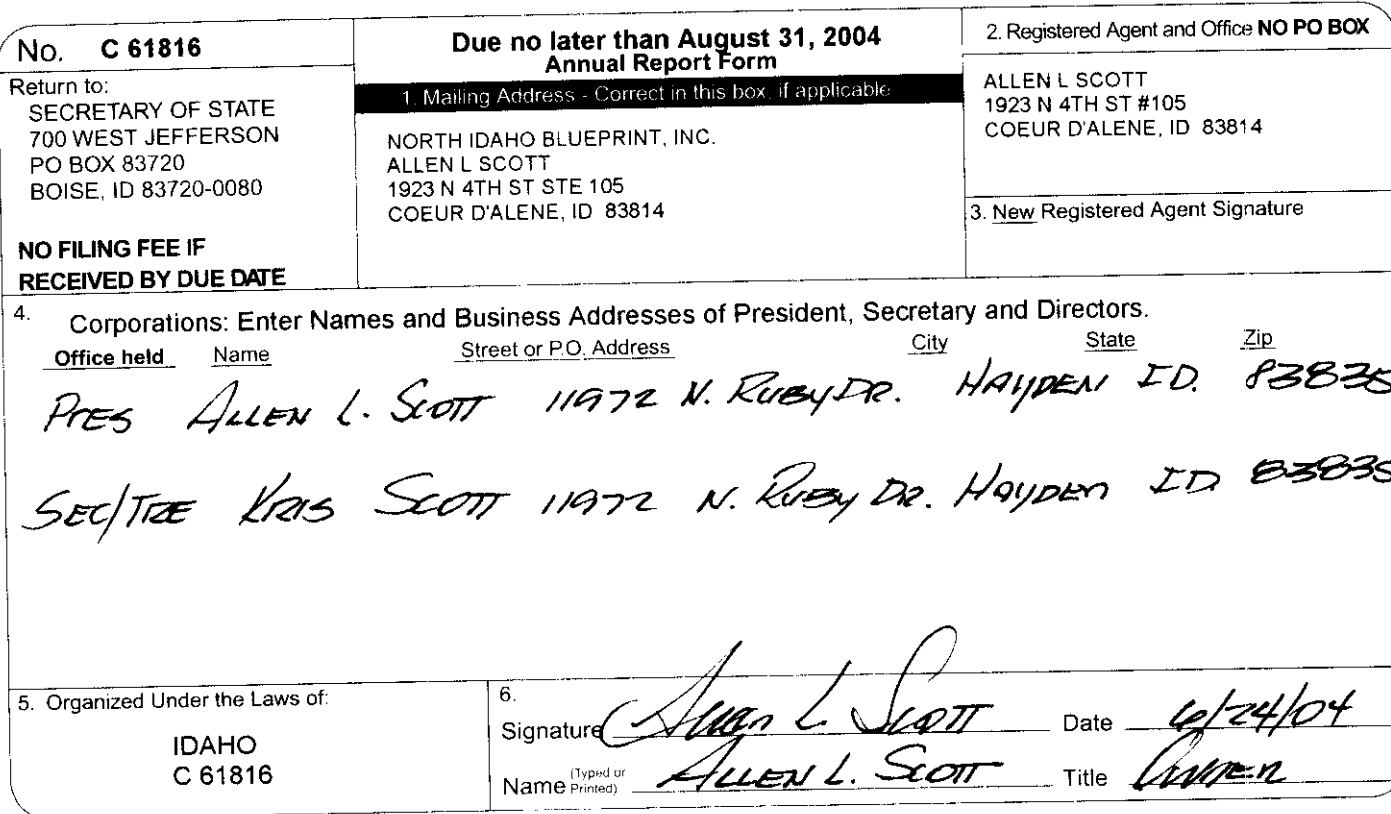 No. C 61816
Return to:
SECRETARY OF STATE
700 WEST JEFFERSON
PO BOX 83720
BOISE, ID 83720-0080
NO FILING FEE IF
RECEIVED BY DUE DATE
Due no later than August 31, 2004
Annual Report Form
1. Mailing Address - Correct in this box, if applicable
NORTH IDAHO BLUEPRINT, INC.
ALLEN L SCOTT
1923 N 4TH ST STE 105
COEUR D'ALENE, ID 83814
2. Registered Agent and Office NO PO BOX
ALLEN L SCOTT
1923 N 4TH ST #105
COEUR D'ALENE, ID 83814
3. New Registered Agent Signature
4. Corporations: Enter Names and Business Addresses of President, Secretary and Directors.
Office held Name Street or P.O. Address City State Zip
PRES ALLEN L. SCOTT 11972 N. RUBY DR. HAYDEN ID. 83835
SEC/TRE KRIS SCOTT 11972 N. RUBY DR. HAYDEN ID 83835
5. Organized Under the Laws of:
IDAHO
C 61816
6.
Signature Allen L Scott Date 6/24/04
Name (Typed or Printed) ALLEN L. SCOTT Title OWNER